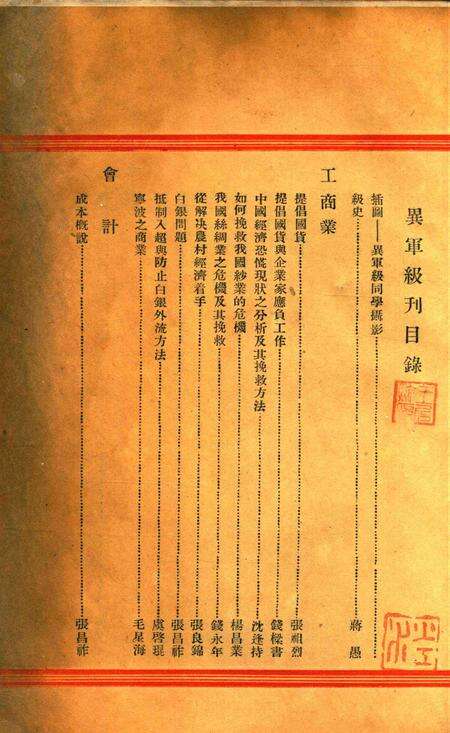 異軍級刊目錄
插圖——異軍級同學攝影
級史……蔣愚
工商業
提倡國貨……張祖烈
提倡國貨與企業家應負工作……錢樑書
中國經濟恐慌現狀之分析及其挽救方法……沈逢持
如何挽救我國紗業的危機……楊昌業
我國絲綢業之危機及其挽救……錢永年
從解决農村經濟着手……張良錦
白銀問題……張昌祚
抵制入超與防止白銀外流方法……虞啓琨
寧波之商業……毛星海
會計
成本概說……張昌祚